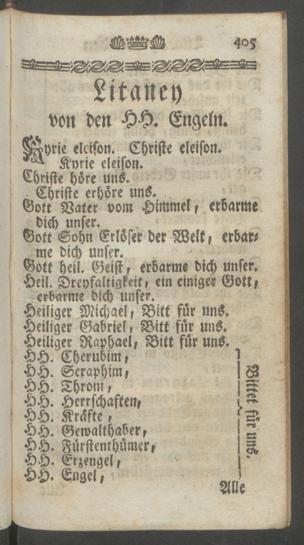 405
Litaney
von den HH. Engeln.
Kyrie eleison. Christe eleison.
Kyrie eleison.
Christe höre uns.
Christe erhöre uns.
Gott Vater vom Himmel, erbarme
dich unser.
Gott Sohn Erlöser der Welt, erbar-
me dich unser.
Gott heil. Geist, erbarme dich unser.
Heil. Dreyfaltigkeit, ein einiger Gott,
erbarme dich unser.
Heiliger Michael, Bitt für uns.
Heiliger Gabriel, Bitt für uns.
Heiliger Raphael, Bitt für uns.
HH. Cherubim,
HH. Seraphim,
HH. Throni,
HH. Herrschaften,
HH. Kräfte,
HH. Gewalthaber,
HH. Fürstenthümer,
HH. Erzengel,
HH. Engel,
Bittet für uns.
Alle